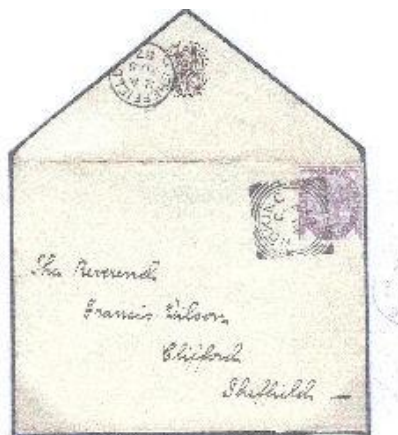 SHEFFIELD
The Reverend
Francis Wilson
Clifford
Sheffield